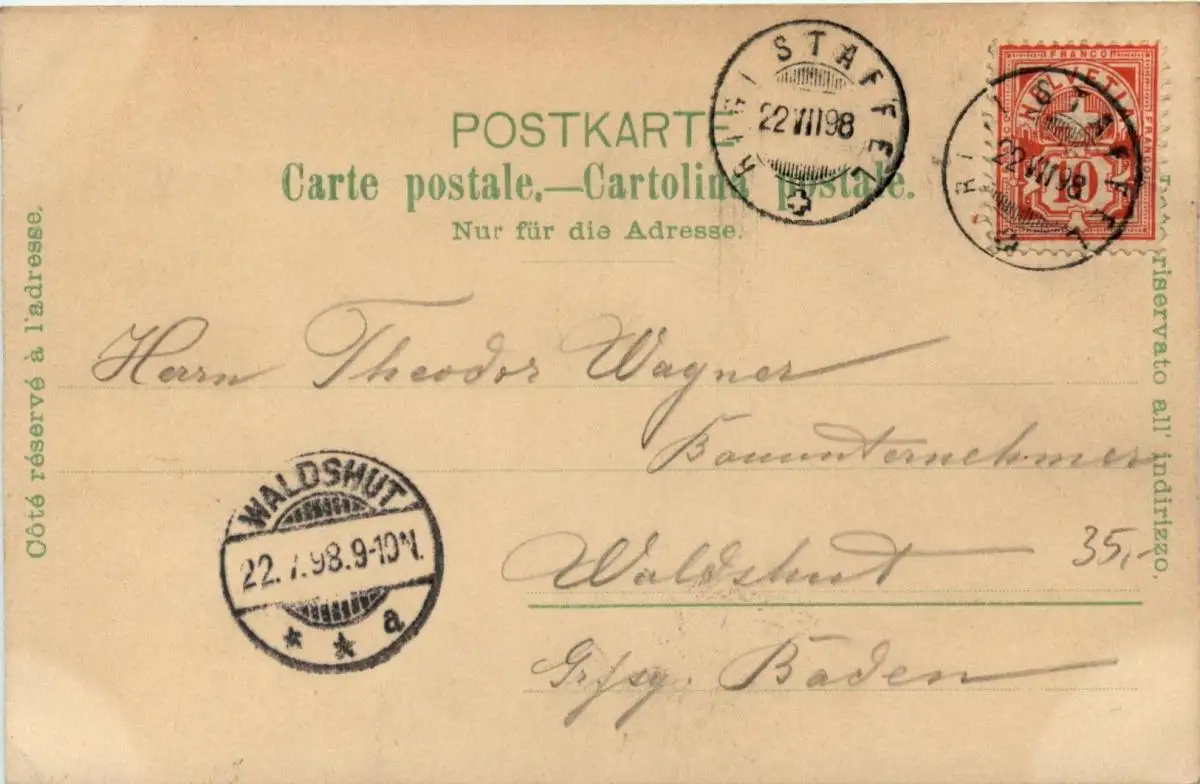 POSTKARTE
Carte postale.—Cartolina postale.
Nur für die Adresse.
RIGI STAFFEL
22 VII 98
FRANCO
HELVETIA
10
FRANCO
RIGI STAFFEL
22 VII 98
Côté réservé à l'adresse.
riservato all' indirizzo.
Herrn Theodor Wagner
Bauunternehmer
Waldshut
35,-
Baden
WALDSHUT
22.7.98.9-10N.
* * a